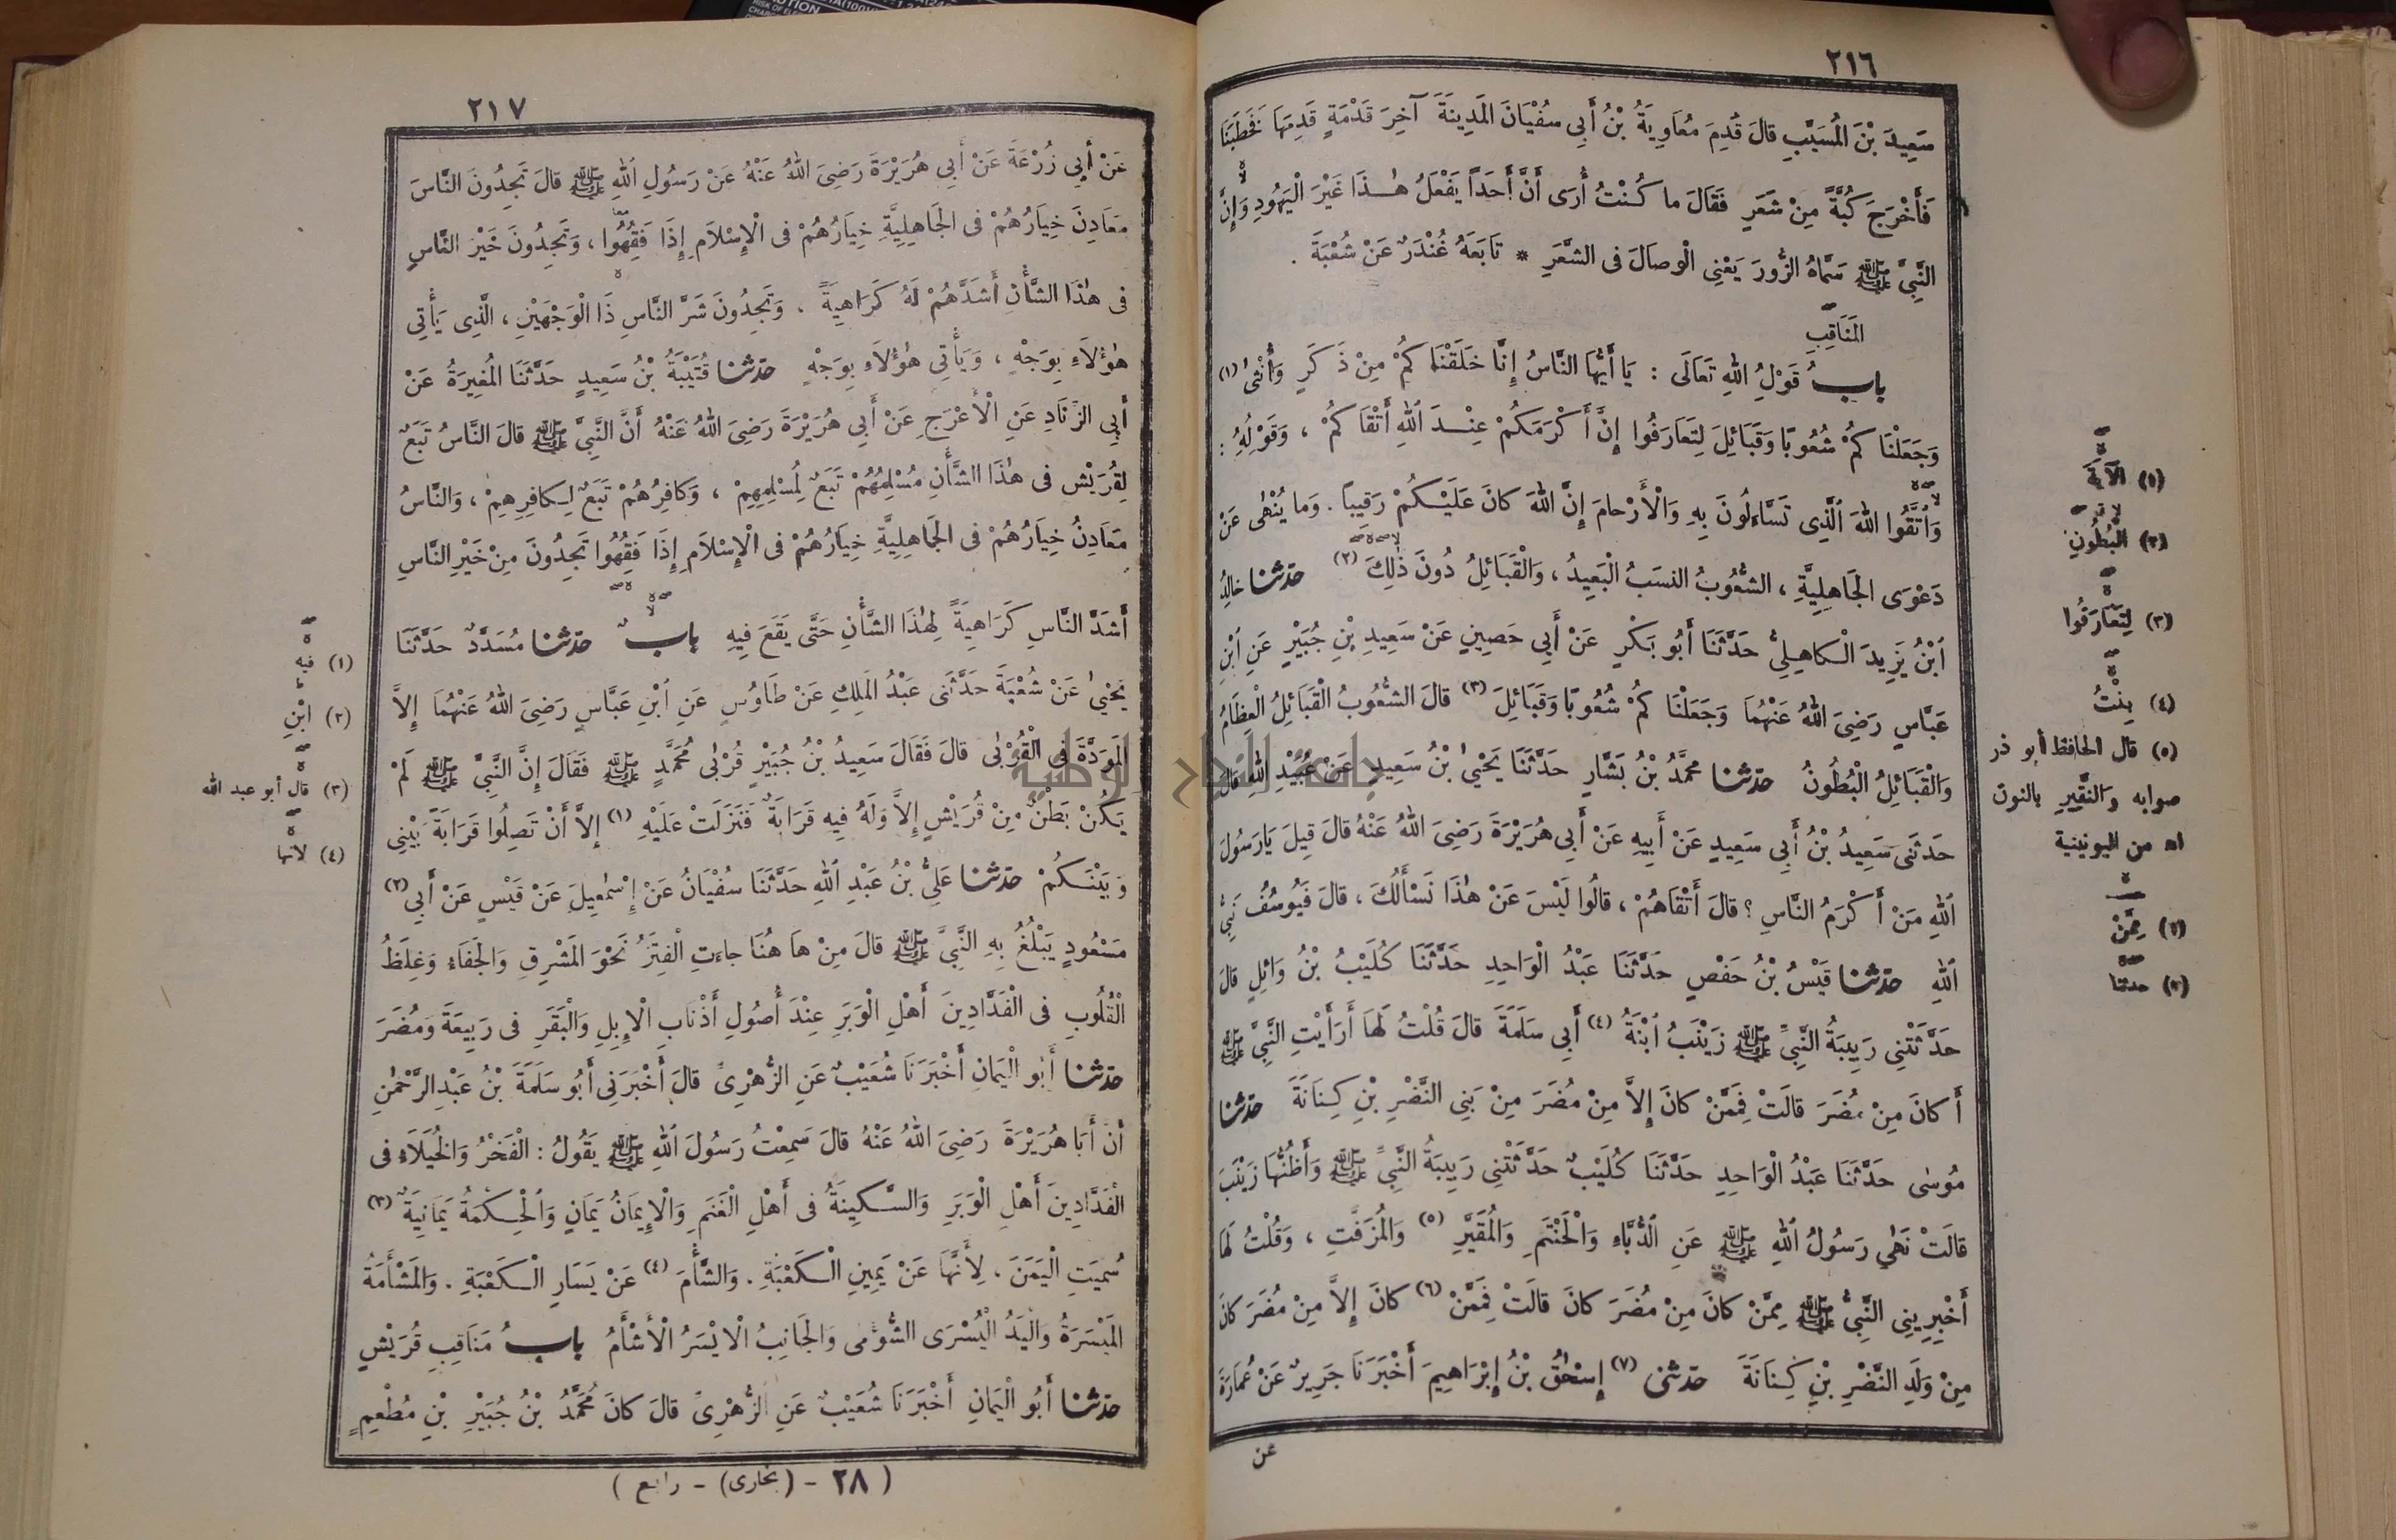 ٢١٦
سَعِيدَ بْنَ الْمُسَيَّبِ قالَ قَدِمَ مُعَاوِيَةُ بْنُ أَبِي سُفْيَانَ الْمَدِينَةَ آخِرَ قَدْمَةٍ قَدِمَهَا فَخَطَبَنَا
فَأَخْرَجَ كُبَّةً مِنْ شَعَرٍ فَقَالَ ما كُنْتُ أُرَى أَنَّ أَحَدًا يَفْعَلُ هٰذَا غَيْرَ الْيَهُودِ وَإِنَّ
النَّبِيَّ ﷺ سَمَّاهُ الزُّورَ يَعْنِي الْوِصَالَ فى الشَّعَرِ * تَابَعَهُ غُنْدَرٌ عَنْ شُعْبَةَ .
الْمَنَاقِبِ
بابُ قَوْلِ اللهِ تَعَالَى : يَا أَيُّهَا النَّاسُ إِنَّا خَلَقْنَاكُمْ مِنْ ذَكَرٍ وَأُنْثَىٰ (١)
وَجَعَلْنَاكُمْ شُعُوبًا وَقَبَائِلَ لِتَعَارَفُوا إِنَّ أَكْرَمَكُمْ عِنْدَ اللهِ أَتْقَاكُمْ ، وَقَوْلِهِ :
وَاتَّقُوا اللهَ الَّذِي تَسَّاءَلُونَ بِهِ وَالْأَرْحامَ إِنَّ اللهَ كانَ عَلَيْكُمْ رَقِيبًا . وَما يُنْهٰى عَنْ
دَعْوَى الْجَاهِلِيَّةِ ، الشُّعُوبُ النسَبُ الْبَعِيدُ ، وَالْقَبَائِلُ دُونَ ذٰلِكَ (٢) حدثنا خالِدُ
ابْنُ يَزِيدَ الْكاهِلِيُّ حَدَّثَنَا أَبُو بَكْرٍ عَنْ أَبِي حَصِينٍ عَنْ سَعِيدِ بْنِ جُبَيْرٍ عَنِ ابْنِ
عَبَّاسٍ رَضِيَ اللهُ عَنْهُمَا وَجَعَلْنَاكُمْ شُعُوبًا وَقَبَائِلَ (٣) قالَ الشُّعُوبُ الْقَبَائِلُ الْعِظَامُ
وَالْقَبَائِلُ الْبُطُونُ حدثنا مُحَمَّدُ بْنُ بَشَّارٍ حَدَّثَنَا يَحْيىٰ بْنُ سَعِيدٍ عَنْ عُبَيْدِ اللهِ قالَ
حَدثَنَى سَعِيدُ بْنُ أَبِي سَعِيدٍ عَنْ أَبِيهِ عَنْ أَبِي هُرَيْرَةَ رَضِيَ اللهُ عَنْهُ قالَ قِيلَ يَا رَسُولَ
اللهِ مَنْ أَكْرَمُ النَّاسِ ؟ قالَ أَتْقَاهُمْ ، قالُوا لَيْسَ عَنْ هٰذَا نَسْأَلُكَ ، قالَ فَيُوسُفُ نَبِيُّ
اللهِ حدثنا قَيْسُ بْنُ حَفْصٍ حَدَّثَنَا عَبْدُ الْوَاحِدِ حَدَّثَنَا كُلَيْبُ بْنُ وَائِلٍ قالَ
حَدَّثَتْنِى رَبِيبَةُ النَّبِيِّ ﷺ زَيْنَبُ ابْنَةُ (٤) أَبِي سَلَمَةَ قالَ قُلْتُ لَهَا أَرَأَيْتِ النَّبِيَّ ﷺ
أَكانَ مِنْ مُضَرَ قالَتْ فَمِمَّنْ كانَ إِلاَّ مِنْ مُضَرَ مِنْ بَنِى النَّضْرِ بْنِ كِنَانَةَ حدثنا
مُوسٰى حَدَّثَنَا عَبْدُ الْوَاحِدِ حَدَّثَنَا كُلَيْبٌ حَدَّثَتْنِى رَبِيبَةُ النَّبِيِّ ﷺ وَأَظُنُّهَا زَيْنَبَ
قالَتْ نَهٰى رَسُولُ اللهِ ﷺ عَنِ الدُّبَّاءِ وَالْحَنْتَمِ وَالْمُقَيَّرِ (٥) وَالْمُزَفَّتِ ، وَقُلْتُ لَهَا
أَخْبِرِينِى النَّبِيُّ ﷺ مِمَّنْ كانَ مِنْ مُضَرَ كانَ قالَتْ فَمِمَّنْ (٦) كانَ إِلاَّ مِنْ مُضَرَ كانَ
مِنْ وَلَدِ النَّضْرِ بْنِ كِنَانَةَ حدثنى (٧) إِسْحٰقُ بْنُ إِبْرَاهِيمَ أَخْبَرَنَا جَرِيرٌ عَنْ عُمَارَةَ
عن
(١) الآيَةَ
(٢) الْبُطُونِ
(٣) لِتَعَارَفُوا
(٤) بِنْتُ
(٥) قال الحافظ أبو ذر
صوابه وَالنَّقِيرِ بالنون
اه من اليونينية
(٦) مِمَّنْ
(٧) حدثنا
٢١٧
عَنْ أَبِي زُرْعَةَ عَنْ أَبِي هُرَيْرَةَ رَضِيَ اللهُ عَنْهُ عَنْ رَسُولِ اللهِ ﷺ قالَ تَجِدُونَ النَّاسَ
مَعَادِنَ خِيَارُهُمْ فى الْجَاهِلِيَّةِ خِيَارُهُمْ فى الْإِسْلاَمِ إِذَا فَقِهُوا ، وَتَجِدُونَ خَيْرَ النَّاسِ
فى هٰذَا الشَّأْنِ أَشَدَّهُمْ لَهُ كَرَاهِيَةً ، وَتَجِدُونَ شَرَّ النَّاسِ ذَا الْوَجْهَيْنِ ، الَّذِى يَأْتِى
هٰؤُلاَءِ بِوَجْهٍ ، وَيَأْتِى هٰؤُلاَءِ بِوَجْهٍ حدثنا قُتَيْبَةُ بْنُ سَعِيدٍ حَدَّثَنَا الْمُغِيرَةُ عَنْ
أَبِي الزِّنَادِ عَنِ الْأَعْرَجِ عَنْ أَبِي هُرَيْرَةَ رَضِيَ اللهُ عَنْهُ أَنَّ النَّبِيَّ ﷺ قالَ النَّاسُ تَبَعٌ
لِقُرَيْشٍ فى هٰذَا الشَّأْنِ مُسْلِمُهُمْ تَبَعٌ لِمُسْلِمِهِمْ ، وَكافِرُهُمْ تَبَعٌ لِكافِرِهِمْ ، وَالنَّاسُ
مَعَادِنُ خِيَارُهُمْ فى الْجَاهِلِيَّةِ خِيَارُهُمْ فى الْإِسْلاَمِ إِذَا فَقِهُوا تَجِدُونَ مِنْ خَيْرِ النَّاسِ
أَشَدَّ النَّاسِ كَرَاهِيَةً لِهٰذَا الشَّأْنِ حَتَّى يَقَعَ فِيهِ بابٌ حدثنا مُسَدَّدٌ حَدَّثَنَا
يَحْيىٰ عَنْ شُعْبَةَ حَدَّثَنى عَبْدُ الْمَلِكِ عَنْ طَاوُسٍ عَنِ ابْنِ عَبَّاسٍ رَضِيَ اللهُ عَنْهُمَا إِلاَّ
الْمَوَدَّةَ فِى الْقُرْبٰى قالَ فَقَالَ سَعِيدُ بْنُ جُبَيْرٍ قُرْبٰى مُحَمَّدٍ ﷺ فَقَالَ إِنَّ النَّبِيَّ ﷺ لَمْ
يَكُنْ بَطْنٌ مِنْ قُرَيْشٍ إِلاَّ وَلَهُ فِيهِ قَرَابَةٌ فَنَزَلَتْ عَلَيْهِ (١) إِلاَّ أَنْ تَصِلُوا قَرَابَةً بَيْنِى
وَبَيْنَكُمْ حدثنا عَلِيُّ بْنُ عَبْدِ اللهِ حَدَّثَنَا سُفْيَانُ عَنْ إِسْمٰعِيلَ عَنْ قَيْسٍ عَنْ أَبِي (٢)
مَسْعُودٍ يَبْلُغُ بِهِ النَّبِيَّ ﷺ قالَ مِنْ هَا هُنَا جاءَتِ الْفِتَنُ نَحْوَ الْمَشْرِقِ وَالْجَفَاءُ وَغِلَظُ
الْقُلُوبِ فى الْفَدَّادِينَ أَهْلِ الْوَبَرِ عِنْدَ أُصُولِ أَذْنَابِ الْإِبِلِ وَالْبَقَرِ فى رَبِيعَةَ وَمُضَرَ
حدثنا أَبُو الْيَمَانِ أَخْبَرَنَا شُعَيْبٌ عَنِ الزُّهْرِىِّ قالَ أَخْبَرَنِى أَبُو سَلَمَةَ بْنُ عَبْدِ الرَّحْمٰنِ
أَنَّ أَبَا هُرَيْرَةَ رَضِيَ اللهُ عَنْهُ قالَ سَمِعْتُ رَسُولَ اللهِ ﷺ يَقُولُ : الْفَخْرُ وَالْخُيَلاَءِ فى
الْفَدَّادِينَ أَهْلِ الْوَبَرِ وَالسَّكِينَةُ فى أَهْلِ الْغَنَمِ وَالْإِيمَانُ يَمَانٍ وَالْحِكْمَةُ يَمَانِيَةٌ (٣)
سُمِيَتِ الْيَمَنَ ، لِأَنَّهَا عَنْ يَمِينِ الْكَعْبَةِ . وَالشَّأْمَ (٤) عَنْ يَسَارِ الْكَعْبَةِ . وَالْمَشْأَمَةُ
الْمَيْسَرَةُ وَالْيَدُ الْيُسْرَى الشُّؤْمٰى وَالْجَانِبُ الْايْسَرُ الْأَشْأَمُ بابُ مَنَاقِبِ قُرَيْشٍ
حدثنا أَبُو الْيَمَانِ أَخْبَرَنَا شُعَيْبٌ عَنِ الزُّهْرِىِّ قالَ كانَ مُحَمَّدُ بْنُ جُبَيْرِ بْنِ مُطْعِمٍ
(١) فيه
(٢) ابْنِ
(٣) قال أبو عبد الله
(٤) لأنها
( ٢٨ - (بخارى) - رابع )
جامعة النجاح الوطنية